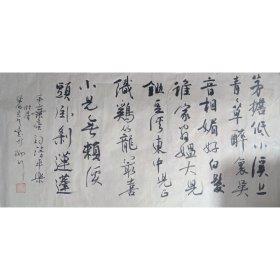 茅檐低小溪上
青青草醉里吴
音相媚好白发
谁家翁媪大儿
锄豆溪东中儿正
织鸡笼最喜
小儿无赖溪
头卧剥莲蓬
辛弃疾词清平乐